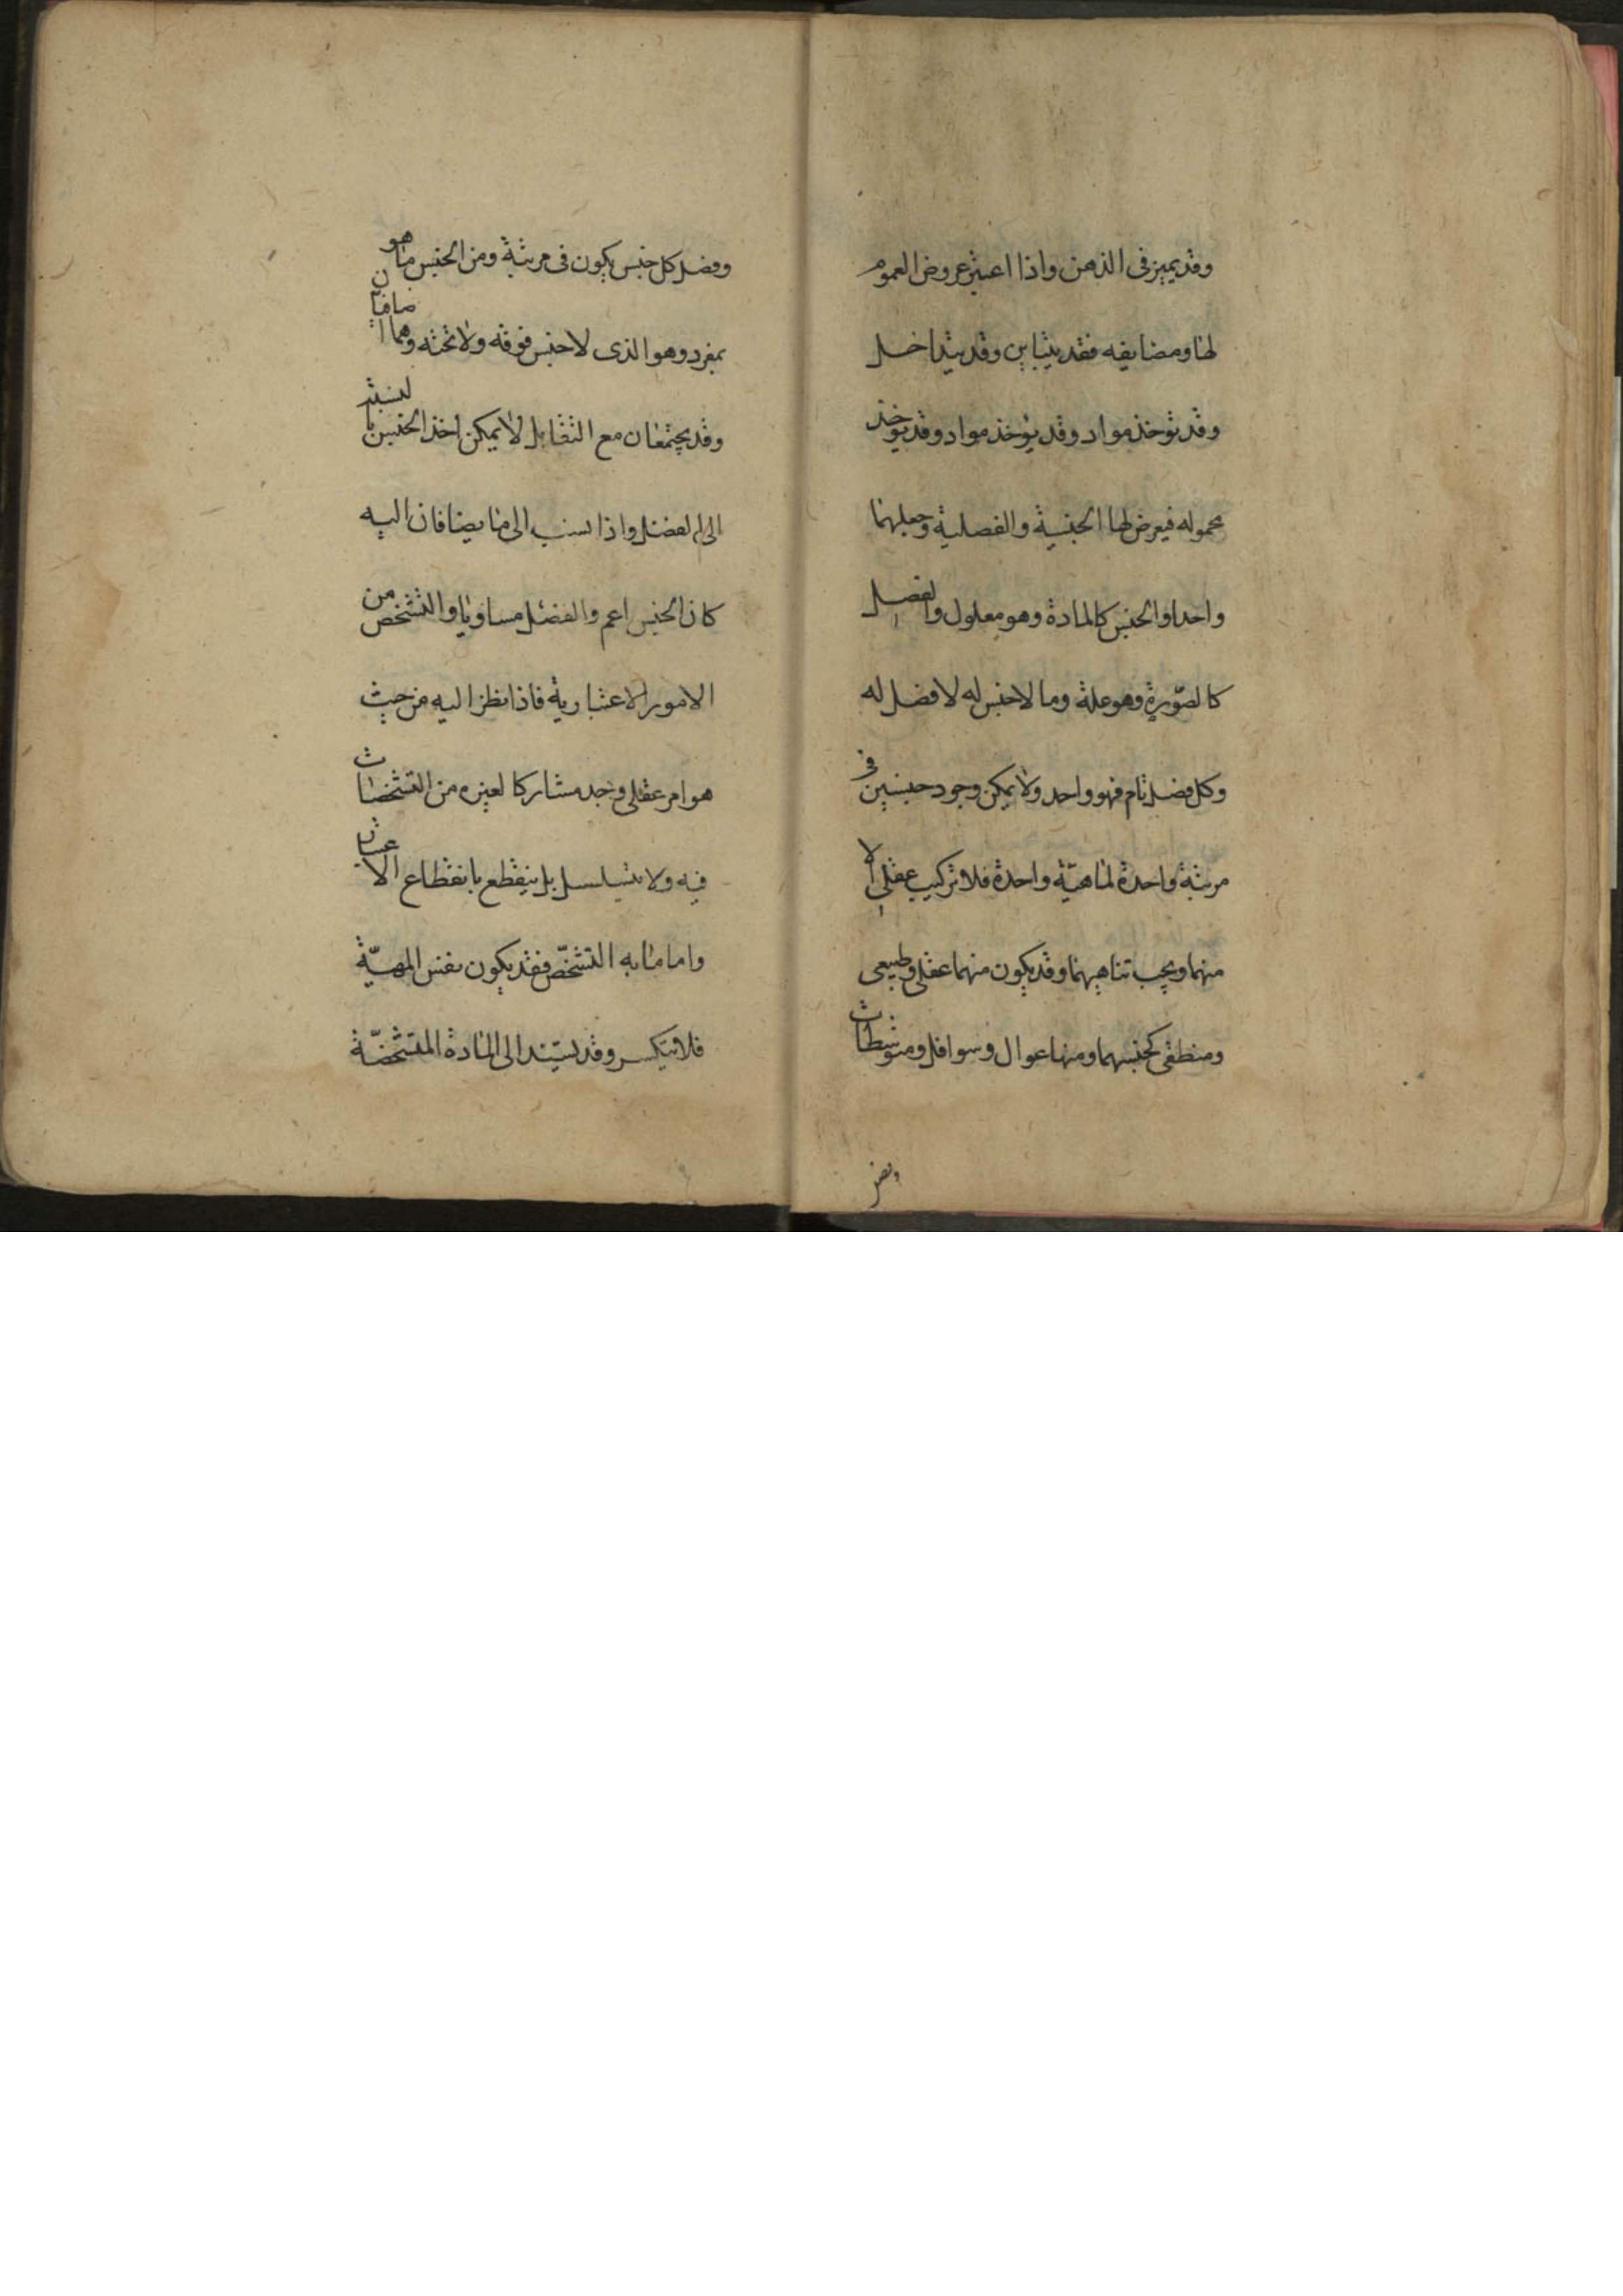 وقد يميز فى الذهن واذا اعتبر عروض العموم
لها ومضايفه فقد يتباين وقد يتداخل
وقد توخذ مواد وقد يؤخذ مواد وقد توخذ
محموله فيعرض لها الجنسية والفصلية وجعلهما
واحدا والجنس كالمادة وهو معلول والفصل
كالصّورة وهو علة وما لا جنس له لا فصل له
وكل فصل تام فهو واحد ولا يمكن وجود جنسين فى
مرتبة واحدة لماهيّة واحدة فلا تركيب عقلى الا
منهما ويجب تناهيهما وقد يكون منهما عقلى وطبيعى
ومنطقى كجنسهما ومنها عوال وسوافل ومتوسطات
وفصل كل جنس يكون فى مرتبة ومن الجنس ما هو
بمفرد وهو الذى لا جنس فوقه ولا تحته وهما اضافيّان
وقد يجتمعان مع التقابل لا يمكن اخذ الجنس بالنسبة
الى الفصل واذا نسب الى ما يضافان اليه
كان الجنس اعم والفصل مساويا والتشخص من
الامور الاعتبارية فاذا نظر اليه من حيث
هو امر عقلى وجد مشاركا لغيره من التشخصات
فيه ولا يتسلسل بل ينقطع بانقطاع الاعتبار
واما ما به التشخّص فقد يكون نفس المهيّة
فلا يتكسر وقد يستند الى المادة المتشخصّة